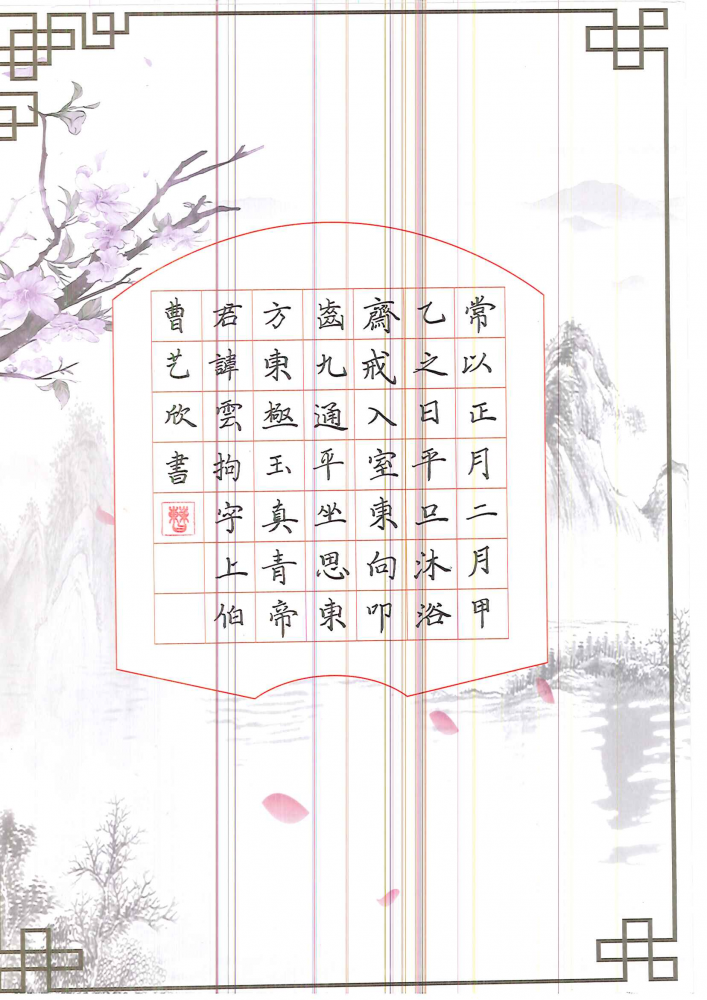 常以正月二月甲
乙之日平旦沐浴
齋戒入室東向叩
齒九通平坐思東
方東極玉真青帝
君諱雲拘字上伯
曹艺欣書